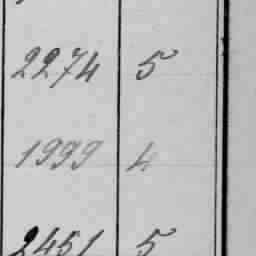 2274 5
1999 4
2451 5